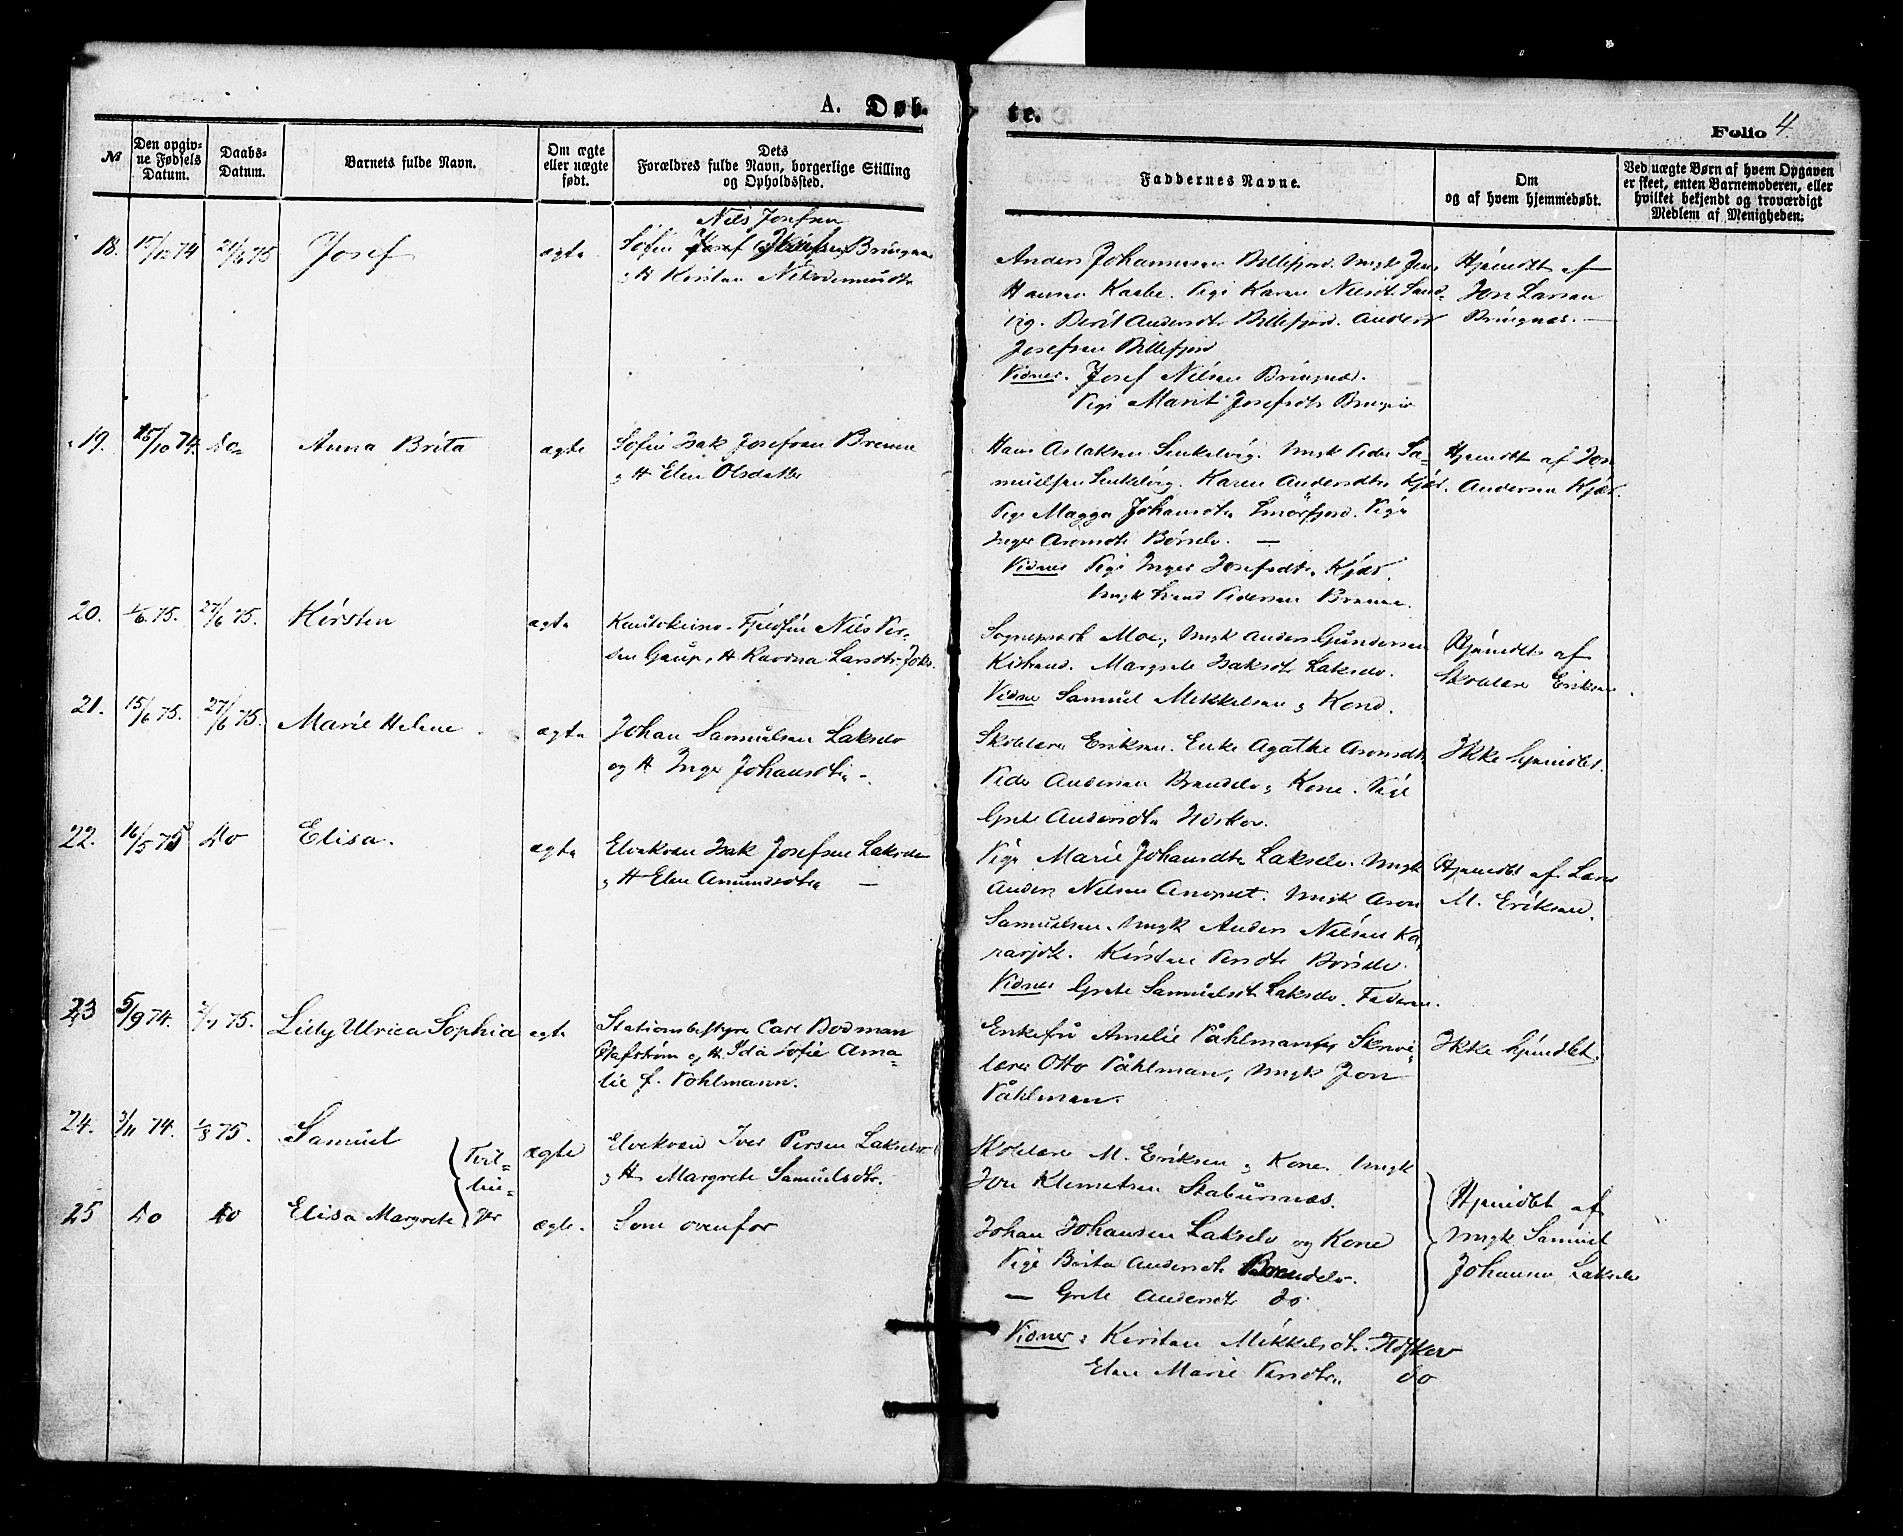 A. Døbte.
Folio 4
№
Den opgivne Fødsels Datum.
Daabs-Datum.
Barnets fulde Navn.
Om ægte eller uægte født.
Dets Forældres fulde Navn, borgerlige Stilling og Opholdssted.
Faddernes Navne.
Om og af hvem hjemmedøbt.
Ved uægte Børn af hvem Opgaven er skeet, enten Barnemoderen, eller hvilket bekjendt og troværdigt Medlem af Menigheden.
18. 74 75 Josef ægte
Nils Josefsen
Søfin
& H Kirsten Nikodemusdtr
Anders Johannesen Billefjord. Ungk Jens
Hansen Kaabe. Pige Karen Nilsdt. Sand-
vig. Berit Andersdtr Billefjord. Anders
Josefsen Billefjord
Vidner. Josef Nilsen Bringnæs.
Pige Marit Josefsdtr
Hjemdbt af
Jon Larsen
Bringnæs. —
19. 15/10 74. do Anna Brita ægte
Søfin Isak Josefsen Brenna
& H Elen Olsdatter
Hans Aslaksen Smkelvig. Ungk Peder Sa-
muelsen Karen Andersdtr Kjæs.
Pige Magga Johansdtr Smörfjord. Pige
Inger Aronsdt Børselv. —
Vidner Pige Inger Josefsdtr. Kjæs.
Ungk Pedersen Brenna.
Hjemdbt af Jon
Andersen Kjæs.
20. 75. 27/6 75. Kirsten ægte
Kautokeino-Fjeldfin Nils Per-
sen Gaup, & H Ravna Larsdtr
Sognepræst Moe, Ungk Anders Gundersen
Kistrand. Margrete Isaksdt Lakselv.
Vidne Samuel Mikkelsen & Kone.
Hjemdbt af
Skolelærer Eriksen.
21. 15/6 75. 27/6 75. Marie Helene. ægte
Johan Samuelsen Lakselv
og H Inger Johansdtr. -
Skolelærer Eriksen. Enke Agathe Aronsdtr.
Peder Andersen Brændelv & Kone. Pige
Grete Andersdtr
Ikke hjemdbt.
22. 16/5 75 do Elisa. ægte
Elvekvæn Isak Josefsen Lakselv
& H Elen Amundsdtr —
Pige Marie Johansdtr Lakselv. Ungk
Anders Nilsen Anopset. Ungk Aron
Samuelsen. Ungk Anders Nilsen Ka-
rasjok. Kirsten Persdtr Børselv.
Vidner Grete Samuelsdt Lakselv. Faderen.
Hjemdbt af Lærer
M. Eriksen.
23 5/9 74. 75. Lilly Ulrica Sophia ægte
Stationsbestyrer Carl Bodman
Olafström og H. Ida Sofie Ama-
lie f. Pohlmann.
Enkefru Amelie Påhlman, Skrive-
lærer Otto Påhlman, Ungk Jon
Påhlman.
Ikke hjemdbt.
24. 3/11 74. 1/8 75. Samuel ægte
Tvil-
lin-
ger
Elvekvæn Iver Persen Lakselv
& H. Margrete Samuelsdtr.
Skolelærer M. Eriksen & Kone. Ungk
Jon Klemetsen Stabursnæs.
25 do do Elisa Margrete ægte.
Som ovenfor
Johan Johansen Lakselv og Kone
Pige Brita Andersdt Brændelv.
— Grete Andersdtr do.
Vidner: Kirsten Mikkelsdt.
Elen Marie Persdtr. do
Hjemdbt af
Ungk Samuel
Johansen Lakselv